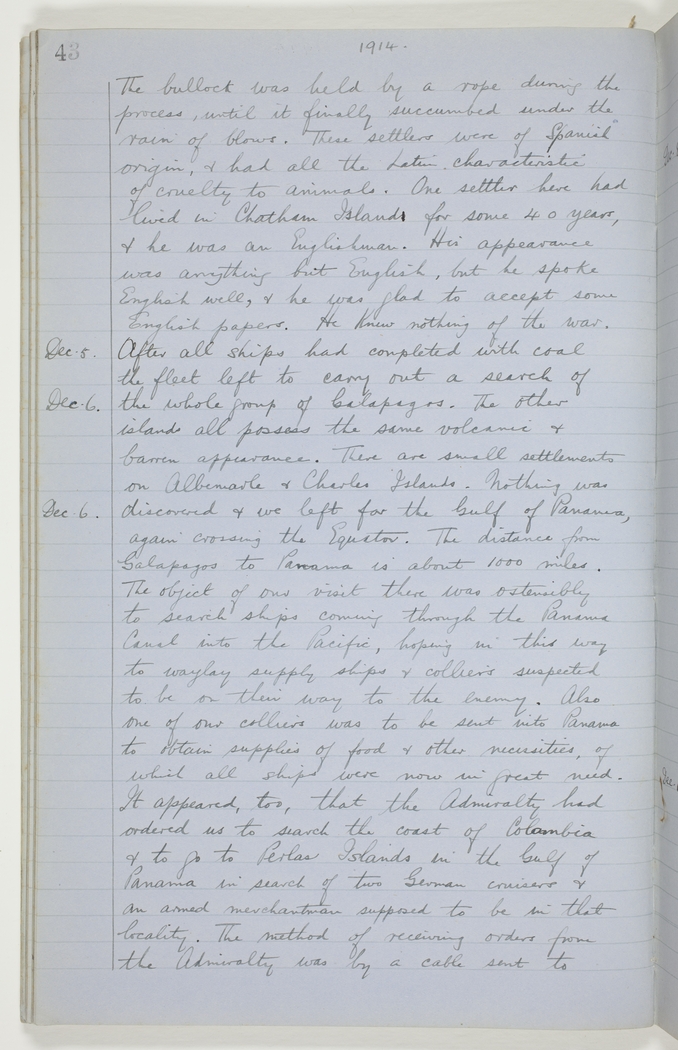 43
1914.
The bullock was held by a rope during the
process, until it finally succumbed under the
rain of blows. These settlers were of "Spanish"
origin, & had all the Latin characteristic
of cruelty to animals. One settler here had
lived in Chatham Island for some 40 years,
& he was an Englishman. His appearance
was anything but English, but he spoke
English well, & he was glad to accept some
English papers. He knew nothing of the war.
Dec. 5. After all ships had completed with coal
the fleet left to carry out a search of
Dec. 6. the whole group of Galapagos. The other
islands all possess the same volcanic &
barren appearance. There are small settlements
on Albemarle & Charles Islands. Nothing was
Dec. 6. discovered & we left for the Gulf of Panama,
again crossing the Equator. The distance from
Galapagos to Panama is about 1000 miles.
The object of our visit there was ostensibly
to search ships coming through the Panama
Canal into the Pacific, hoping in this way
to waylay supply ships & colliers suspected
to be on their way to the enemy. Also
one of our colliers was to be sent into Panama
to obtain supplies of food & other necessities, of
which all ships were now in great need.
It appeared, too, that the Admiralty had
ordered us to search the coast of Colombia
& to go to Perlas Islands in the Gulf of
Panama in search of two German cruisers &
an armed merchantman supposed to be in that
locality. The method of receiving orders from
the Admiralty was by a cable sent to